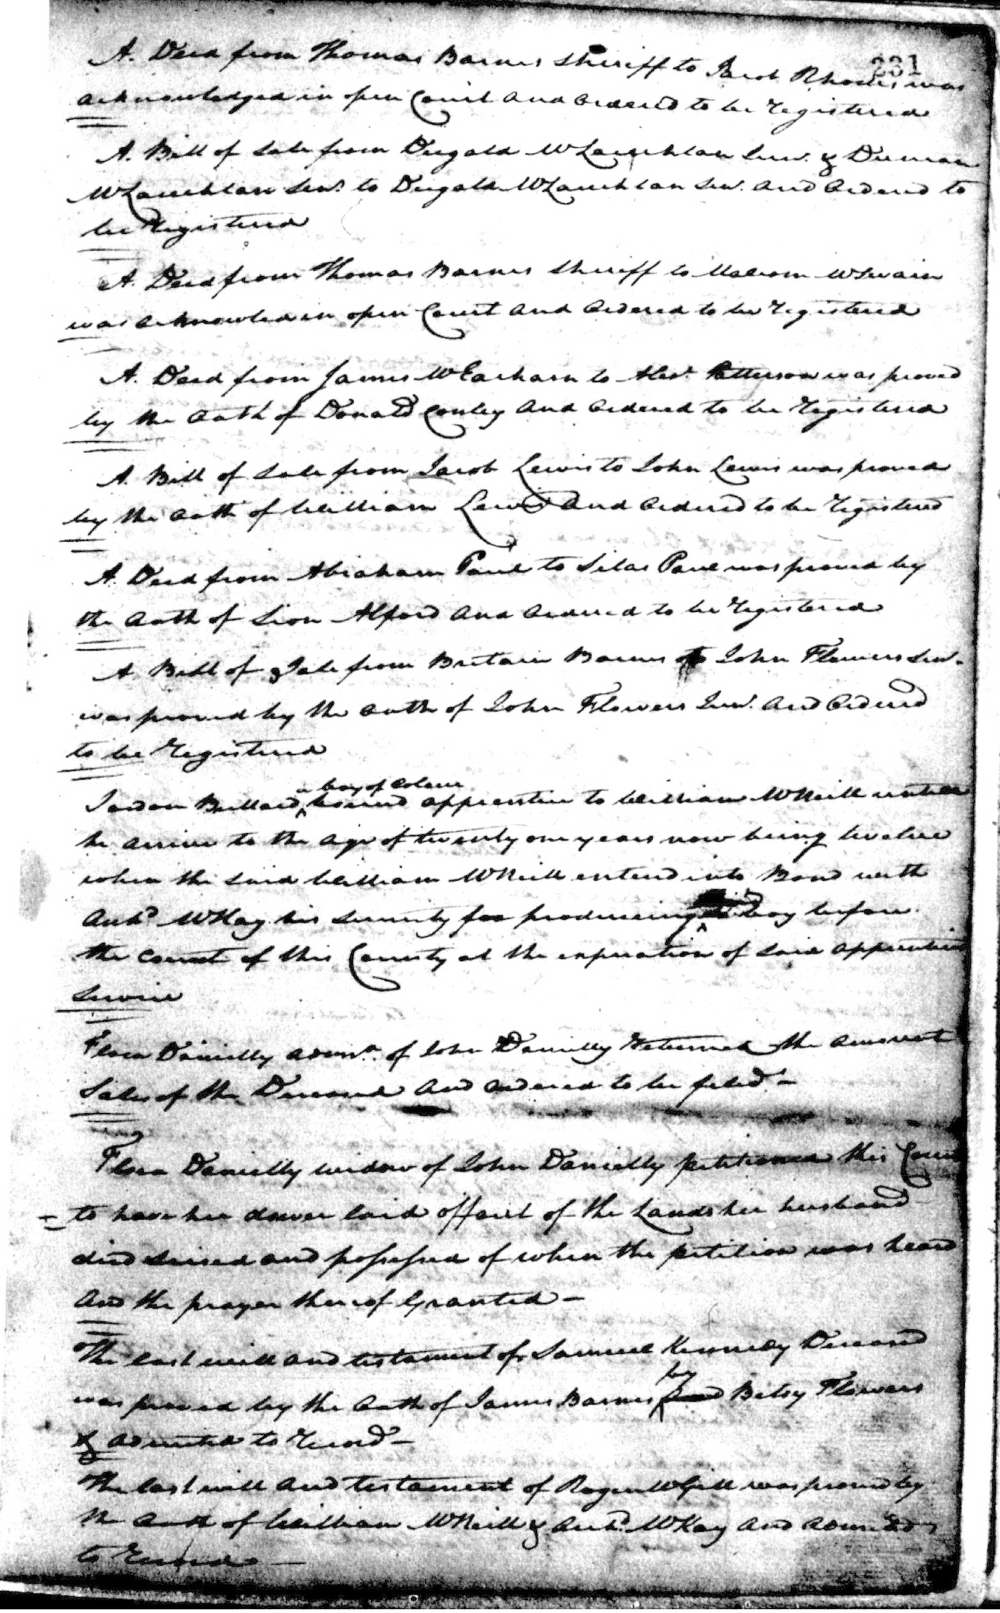 231
A. Deed from Thomas Barnes Sheriff to Jacob Rhodes was
acknowledged in open Court and ordered to be registered
A. Bill of Sale from Dugald McLauchlan Junr. & Duncan
McLauchlan Senr. to Dugald McLauchlan Senr. and Ordered to
be Registered
A. Deed from Thomas Barnes Sheriff to Malcom McSwain
was acknowled in open Court and Ordered to be registered
A. Deed from James McEacharn to Alexr. Patterson was proved
by the Oath of Donald Conley and Ordered to be Registered
A. Bill of Sale from Jacob Lewis to John Lewis was proved
by the Oath of William Lewis and Ordered to be registered
A. Deed from Abraham Paul to Silas Paul was proved by
the Oath of Sion Alford and Ordered to be registered
A Bill of Sale from Britain Barnes to John Flowers Senr.
was proved by the Oath of John Flowers Junr. and Ordered
to be registered
a boy of Colour
Jordan Bullard bound apprentice to William McNeill untill
he arrive to the age of twenty one years now being twelve
when the said William McNeill entered into Bond with
Archd McKay his Security for producing boy before
the Court of this County at the expiration of said apprentice
Service
Flora Danielly admr. of John Danielly returned the amount
Sales of the Deceased and ordered to be filed -
Flora Danielly widow of John Danielly petitioned this Court
to have her dower laid off out of the Lands her husband
died seised and possessed of when the petition was heard
and the prayer thereof Granted -
The last will and testament of Samuel Kennedy Deceased
by
was proved by the Oath of James Barnes and Betsy Flowers
& admitted to record -
The last will and testament of Roger McGill was proved by
the Oath of William McNeill & Archd. McKay and admitted
to Record -